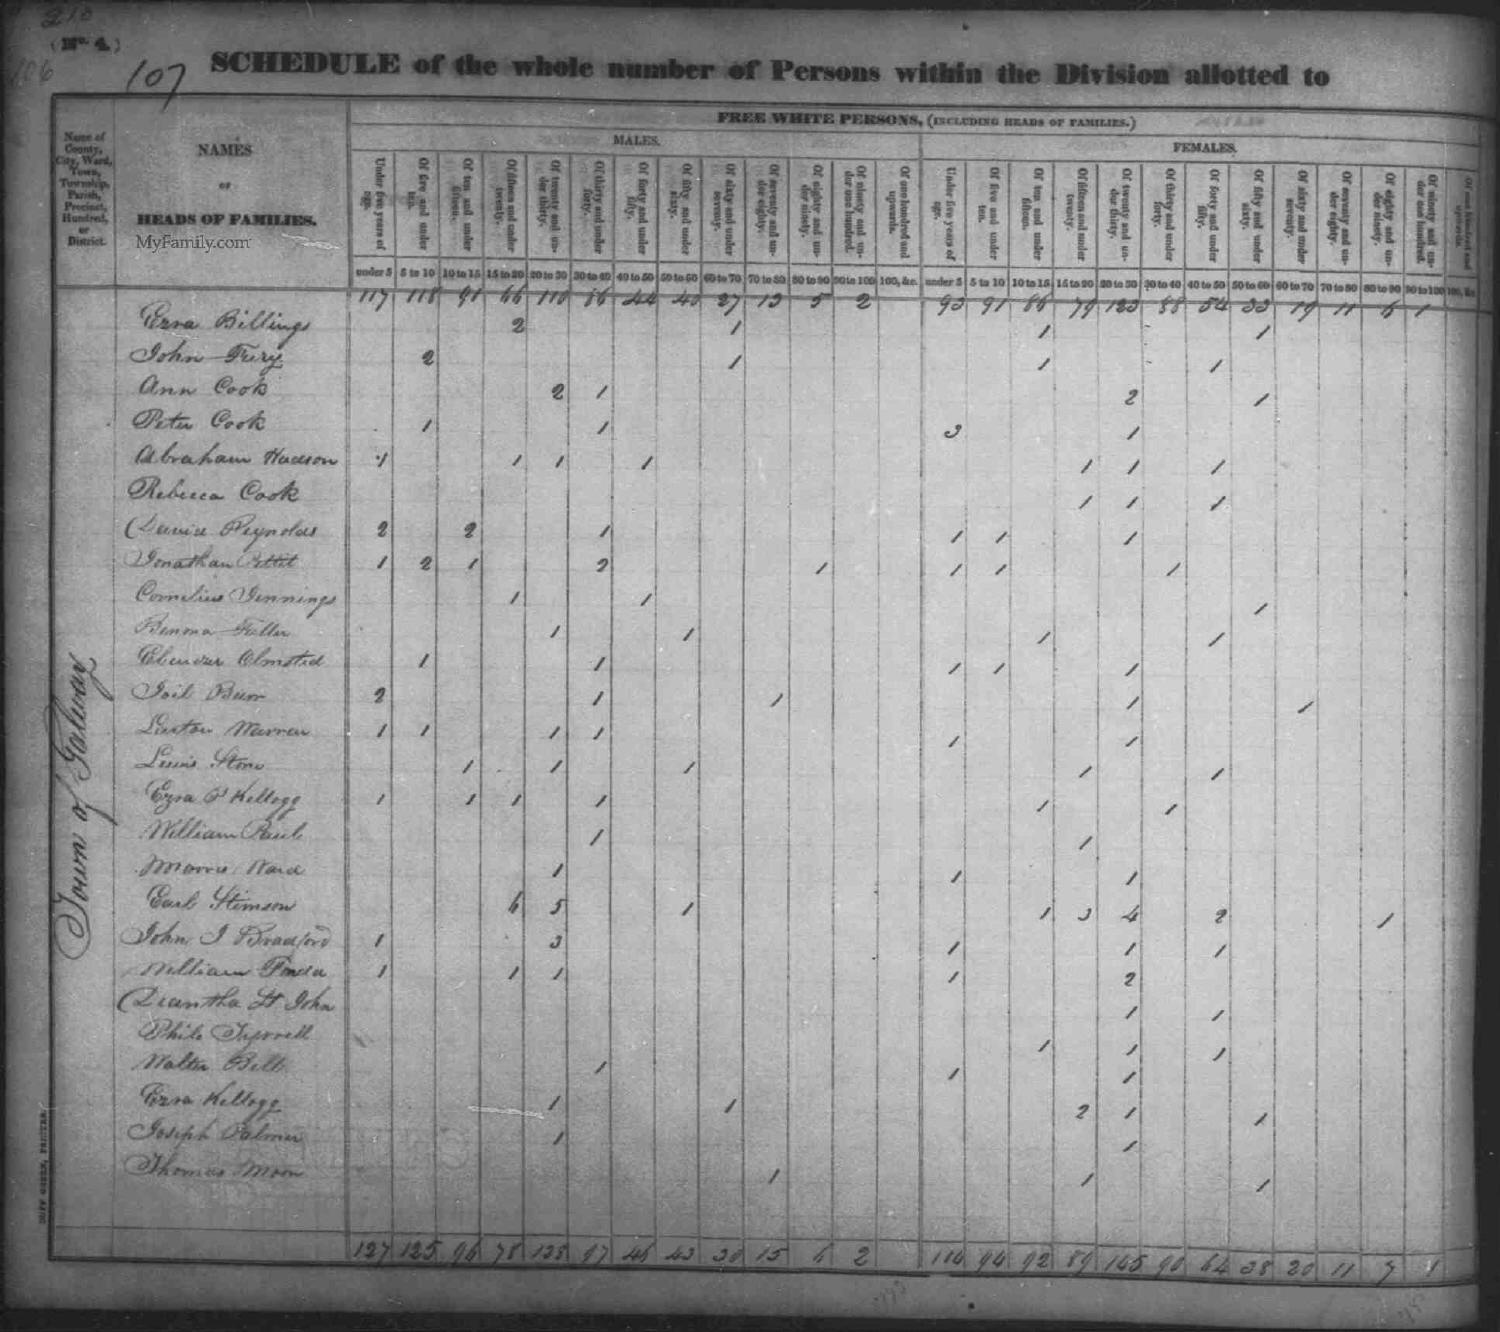 210
(No. 4.)
106
107
SCHEDULE of the whole number of Persons within the Division allotted to
FREE WHITE PERSONS, (INCLUDING HEADS OF FAMILIES.)
MALES. FEMALES.
Name of County, City, Ward, Town, Township, Parish, Precinct, Hundred, or District.
NAMES
OF
HEADS OF FAMILIES.
MyFamily.com
Under five years of age. Of five and under ten. Of ten and under fifteen. Of fifteen and under twenty. Of twenty and under thirty. Of thirty and under forty. Of forty and under fifty. Of fifty and under sixty. Of sixty and under seventy. Of seventy and under eighty. Of eighty and under ninety. Of ninety and under one hundred. Of one hundred and upwards. Under five years of age. Of five and under ten. Of ten and under fifteen. Of fifteen and under twenty. Of twenty and under thirty. Of thirty and under forty. Of forty and under fifty. Of fifty and under sixty. Of sixty and under seventy. Of seventy and under eighty. Of eighty and under ninety. Of ninety and under one hundred. Of one hundred and upwards.
under 5 5 to 10 10 to 15 15 to 20 20 to 30 30 to 40 40 to 50 50 to 60 60 to 70 70 to 80 80 to 90 90 to 100 100, &c. under 5 5 to 10 10 to 15 15 to 20 20 to 30 30 to 40 40 to 50 50 to 60 60 to 70 70 to 80 80 to 90 90 to 100 100, &c.
117 118 91 66 110 86 44 40 27 13 5 2 93 91 86 79 123 88 54 33 19 11 6 1
Ezra Billings 2 1 1 1
John 2 1 1 1
Ann Cook 2 1 2 1
Peter Cook 1 1 3 1
Abraham Hudson 1 1 1 1 1 1 1
Rebecca Cook 1 1 1
Reynolds 2 2 1 1 1 1
Jonathan Pettit 1 2 1 2 1 1 1 1
Cornelius Jennings 1 1 1
Benona Fuller 1 1 1 1
Ebenezer Olmsted 1 1 1 1 1
Joil Burr 2 1 1 1 1
Warren 1 1 1 1 1 1
Lewis Stone 1 1 1 1 1
Ezra P Kellogg 1 1 1 1 1 1
William Paul 1 1
Morris Ward 1 1 1
Earl Stimson 6 5 1 1 3 4 2 1
John J Bradford 1 3 1 1 1
William Fonda 1 1 1 1 2
Diantha St John 1 1
Philo 1 1 1
Walter Bell 1 1 1
Ezra Kellogg 1 1 2 1 1
Joseph Palmer 1 1
Thomas Moon 1 1 1
Town of Galway
DUFF GREEN, PRINTER.
127 125 96 78 128 97 48 43 30 15 6 2 104 94 92 89 145 90 64 38 20 11 7 1